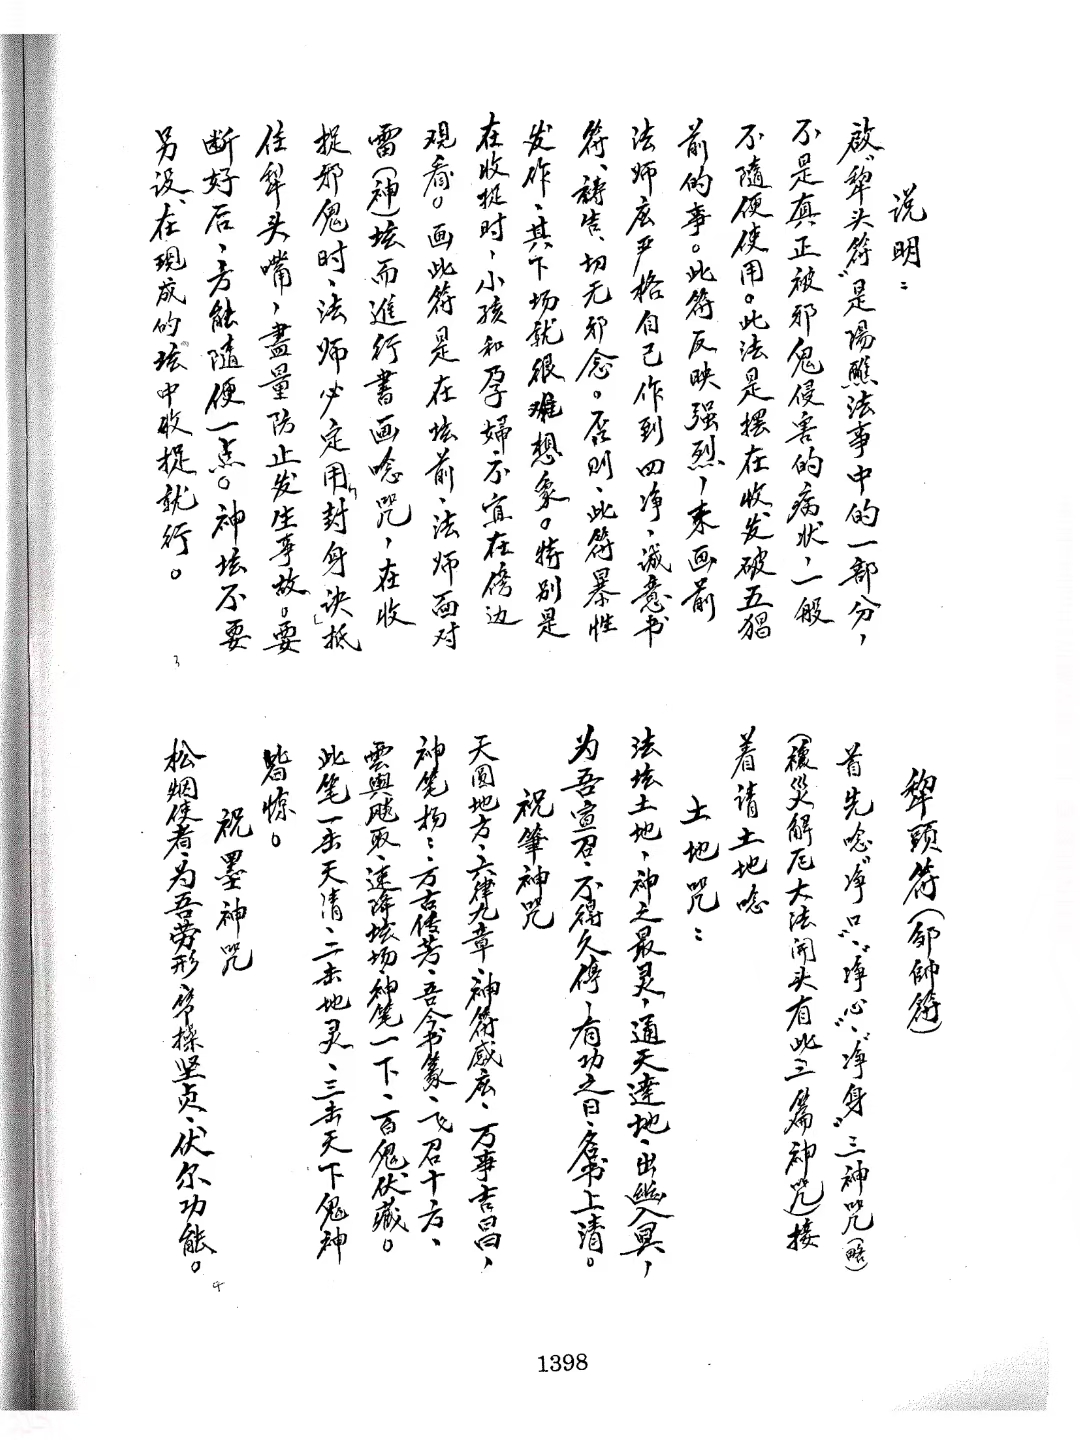 说明：
啟“犂头符”是陽醮法事中的一部分，
不是真正被邪鬼侵害的病状，一般
不隨便使用。此法是摆在收发破五猖
前的事。此符反映强烈，未画前
法师应严格自己作到四净，诚意书
符、祷告、切无邪念。否则、此符暴性
发作、其下场就很难想象。特别是
在收捉时，小孩和孕婦不宜在傍边
观看。画此符是在坛前、法师面对
雷（神）坛而進行書画唸咒，在收
捉邪鬼时、法师必定用“封身诀”抵
住犂头嘴，盡量防止发生事故。要
断好后、方能隨便一点。神坛不要
另设、在现成的坛中收捉就行。
3
犂頭符（邹帥符）
首先唸“净口”、“净心”、“净身”三神咒（略）
（禳災解厄大法開头有此三篇神咒）接
着请土地唸
土地咒：
法坛土地、神之最灵，通天達地、出幽入冥，
为吾宣召、不得久停，有功之日、名书上清。
祝筆神咒
天圆地方、六律九章、神符感应、万事吉昌，
神笔扬：万古传芳、吾今书篆、飞召十方、
雲舆飚取、速降坛场、神笔一下、百鬼伏藏。
此笔一击天清、二击地灵、三击天下鬼神
皆惊。
祝墨神咒
松烟使者、为吾劳形、常操坚贞、伏尔功能。
4
1398